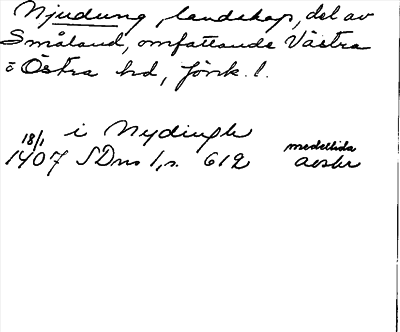 Njudung, landskap, del av
Småland, omfattande Västra
o Östra hd, Jönk. l.
i Nydingh
18/1 1407 SDns 1, s. 612 medeltida avskr